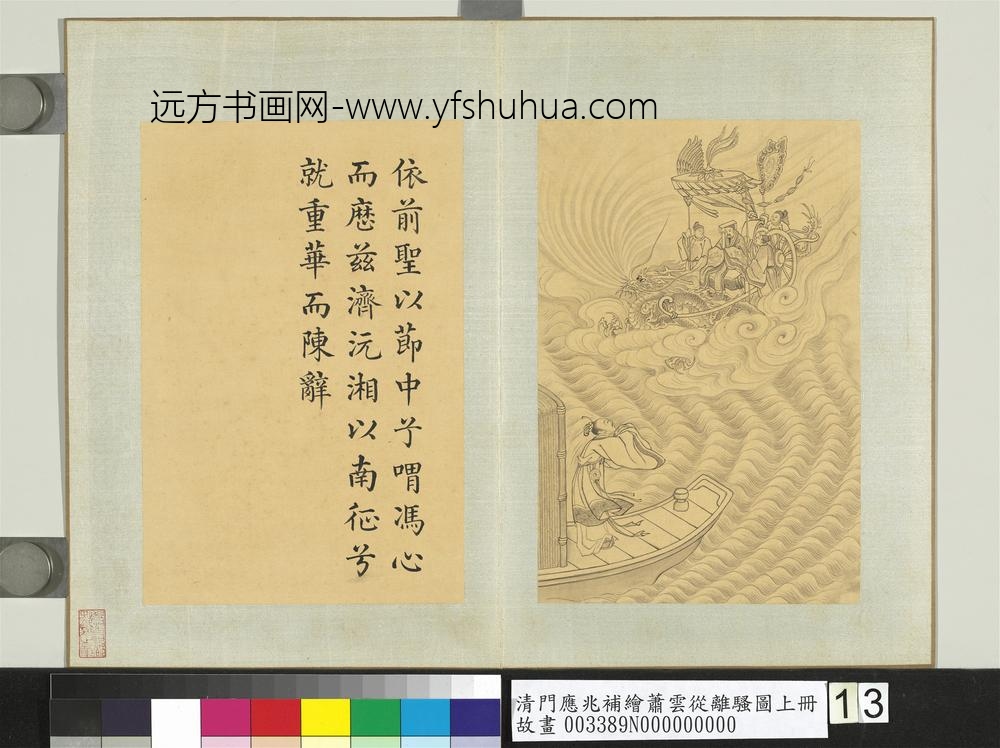 远方书画网-www.yfshuhua.com
依前聖以節中兮喟馮心
而歷茲濟沅湘以南征兮
就重華而陳辭
清門應兆補繪蕭雲從離騷圖上冊
故畫 003389N000000000
13